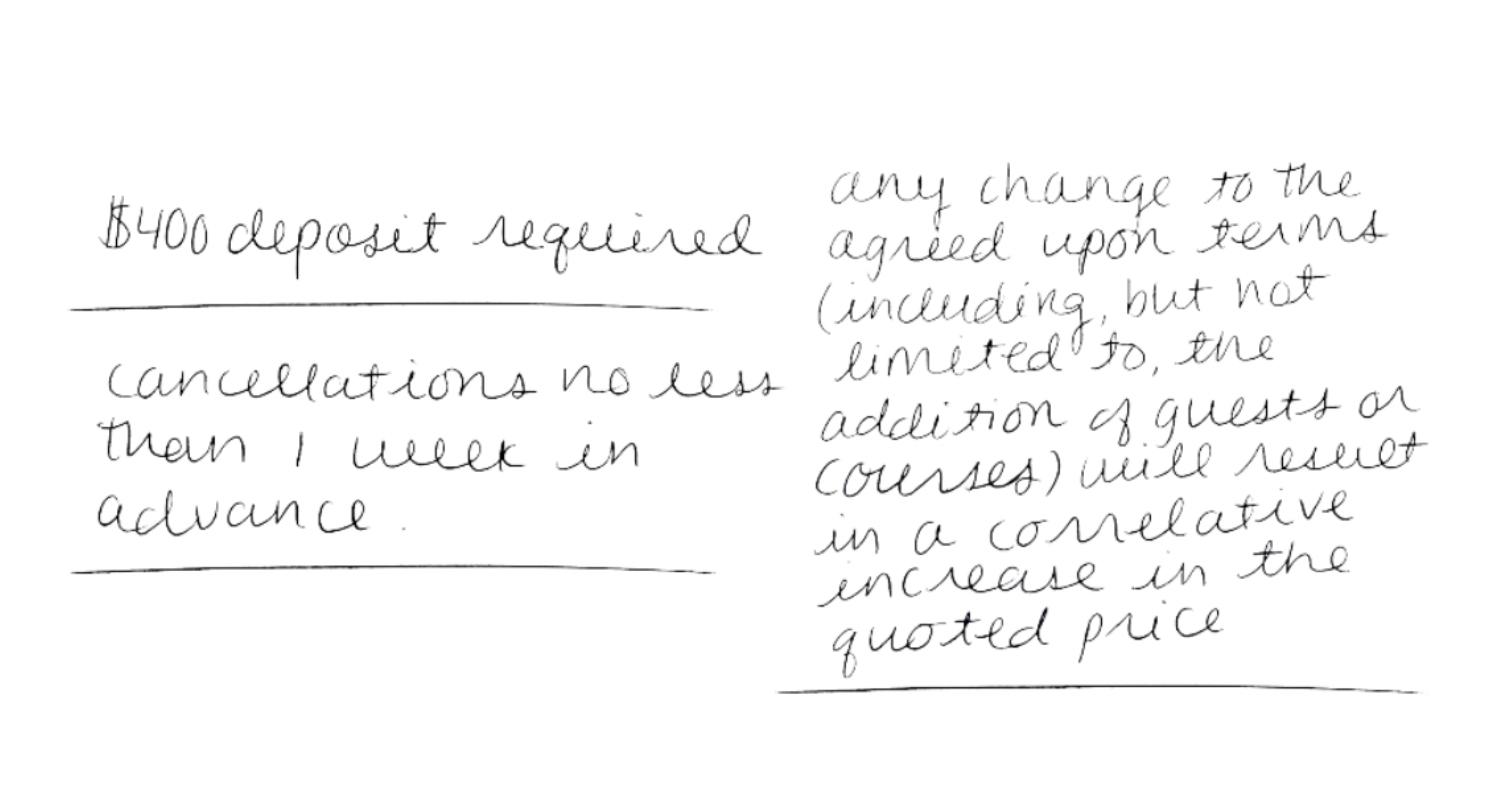 $400 deposit required
cancellations no less
than 1 week in
advance.
any change to the
agreed upon terms
(including, but not
limited to, the
addition of guests or
courses) will result
in a correlative
increase in the
quoted price